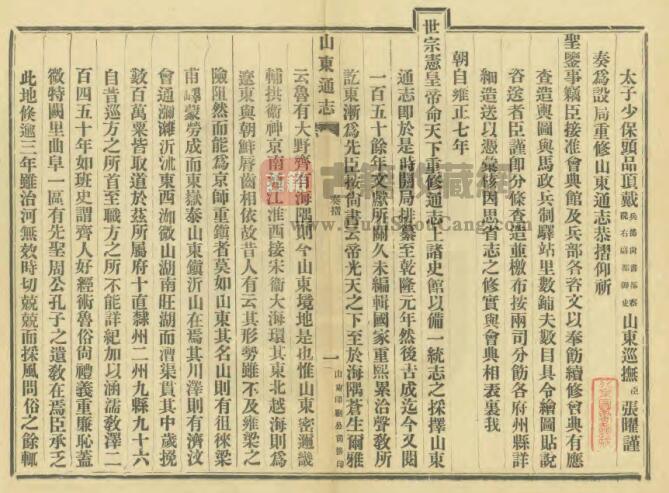 太子少保頭品頂戴兵部尚書部察院右副都御史山東巡撫臣張曜謹
奏爲設局重修山東通志恭摺仰祈
聖鑒事竊臣接准會典館及兵部各咨文以奉飭續修會典有應
查造輿圖與馬政兵制驛站里數鋪夫數目具令繪圖貼說
咨送者臣謹卽分條查造並檄布按兩司分飭各府州縣詳
細造送以憑彙核因思省志之修實與會典相表裏我
朝自雍正七年
世宗憲皇帝命天下重修通志上諸史館以備一統志之採擇山東
通志卽於是時開局排纂至乾隆元年然後告成迄今又閱
一百五十餘年文獻所關久未編輯國家重熙累洽聲敎所
訖東漸爲先臣按尙書云帝光天之下至於海隅蒼生爾雅
山東通志
奏摺
一
山東印刷局 印
云魯有大野齊有海隅則今山東境地是也惟山東密邇畿
輔拱衞神京南控江淮西接宋衞大海環其東北越海則爲
遼東與朝鮮脣齒相依故昔人有云其形勢雖不及雍梁之
險阻然而能爲京師重鎭者莫如山東其名山則有徂徠梁
甫嶧蒙勞成而東嶽泰山東鎭沂山在焉其川澤則有濟汶
會通濰沂沭東西泇微山湖南旺湖而漕渠貫其中歲挽
數百萬粟皆取道於茲所屬府十直隸州二州九縣九十六
自昔巡方之所首至職方之所不能詳紀加以涵濡敎澤二
百四五十年如班史謂齊人好經術魯俗尙禮義重廉恥蓋
微特闕里曲阜一區有先聖周公孔子之遺敎在焉臣承乏
此地倏逾三年雖治河無效時切兢兢而採風問俗之餘輒
古籍